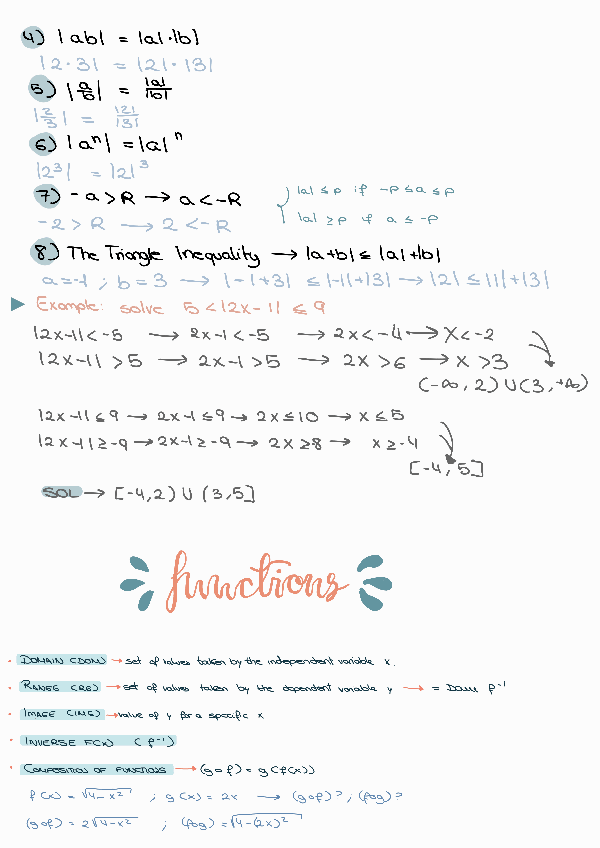 4) |ab| = |a|·|b|
|2·3| = |2|·|3|
5) |a/b| = |a|/|b|
|2/3| = |2|/|3|
6) |aⁿ| = |a|ⁿ
|2³| = |2|³
7) -a > R → a < -R
|a| ≤ p if -p ≤ a ≤ p
-2 > R → 2 < -R
|a| ≥ p if a ≤ -p
8) The Triangle Inequality → |a+b| ≤ |a|+|b|
a=-1 ; b=3 → |-1+3| ≤ |-1|+|3| → |2| ≤ |1|+|3|
Example: solve 5 < |2x-1| ≤ 9
|2x-1| < -5 → 2x-1 < -5 → 2x < -4 → x < -2
|2x-1| > 5 → 2x-1 > 5 → 2x > 6 → x > 3
(-∞, 2) U (3, +∞)
|2x-1| ≤ 9 → 2x-1 ≤ 9 → 2x ≤ 10 → x ≤ 5
|2x-1| ≥ -9 → 2x-1 ≥ -9 → 2x ≥ 8 → x ≥ -4
[-4, 5]
SOL → [-4, 2) U (3, 5]
functions
· DOMAIN (DOM) → set of values taken by the independent variable x.
· RANGE (RG) → set of values taken by the dependent variable y → = Dom f⁻¹
· IMAGE (IMG) → value of y for a specific x
· INVERSE F(x) (f⁻¹)
· COMPOSITION OF FUNCTIONS → (g o f) = g(f(x))
f(x) = √(4-x²) ; g(x) = 2x → (g o f)? ; (f o g)?
(g o f) = 2√(4-x²) ; (f o g) = √(4-(2x)²)